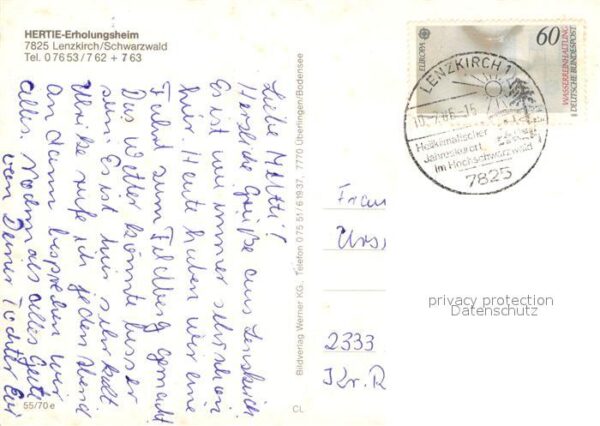 HERTIE-Erholungsheim
7825 Lenzkirch/Schwarzwald
Tel. 07653/762 + 763
Liebe Mutti!
Herzliche Grüße aus Lenzkirch
Es ist wie immer sehr schön
hier. Heute haben wir eine
Fahrt zum Feldberg gemacht
Das Wetter könnte besser
sein. Es ist hier sehr kalt
Ulrike rufe ich jeden Abend
an dann besprechen wir
alles. Nochmals alles Gute
von Deiner Tochter
55/70 e
CL
Bildverlag Werner KG., Telefon 0 75 51/6 19 37, 7770 Überlingen/Bodensee
EUROPA
60
WASSERREINHALTUNG
DEUTSCHE BUNDESPOST
LENZKIRCH 1
Heilklimatischer
Jahreskurort
im Hochschwarzwald
7825
Frau
Urs
privacy protection
Datenschutz
2333
Kr. R